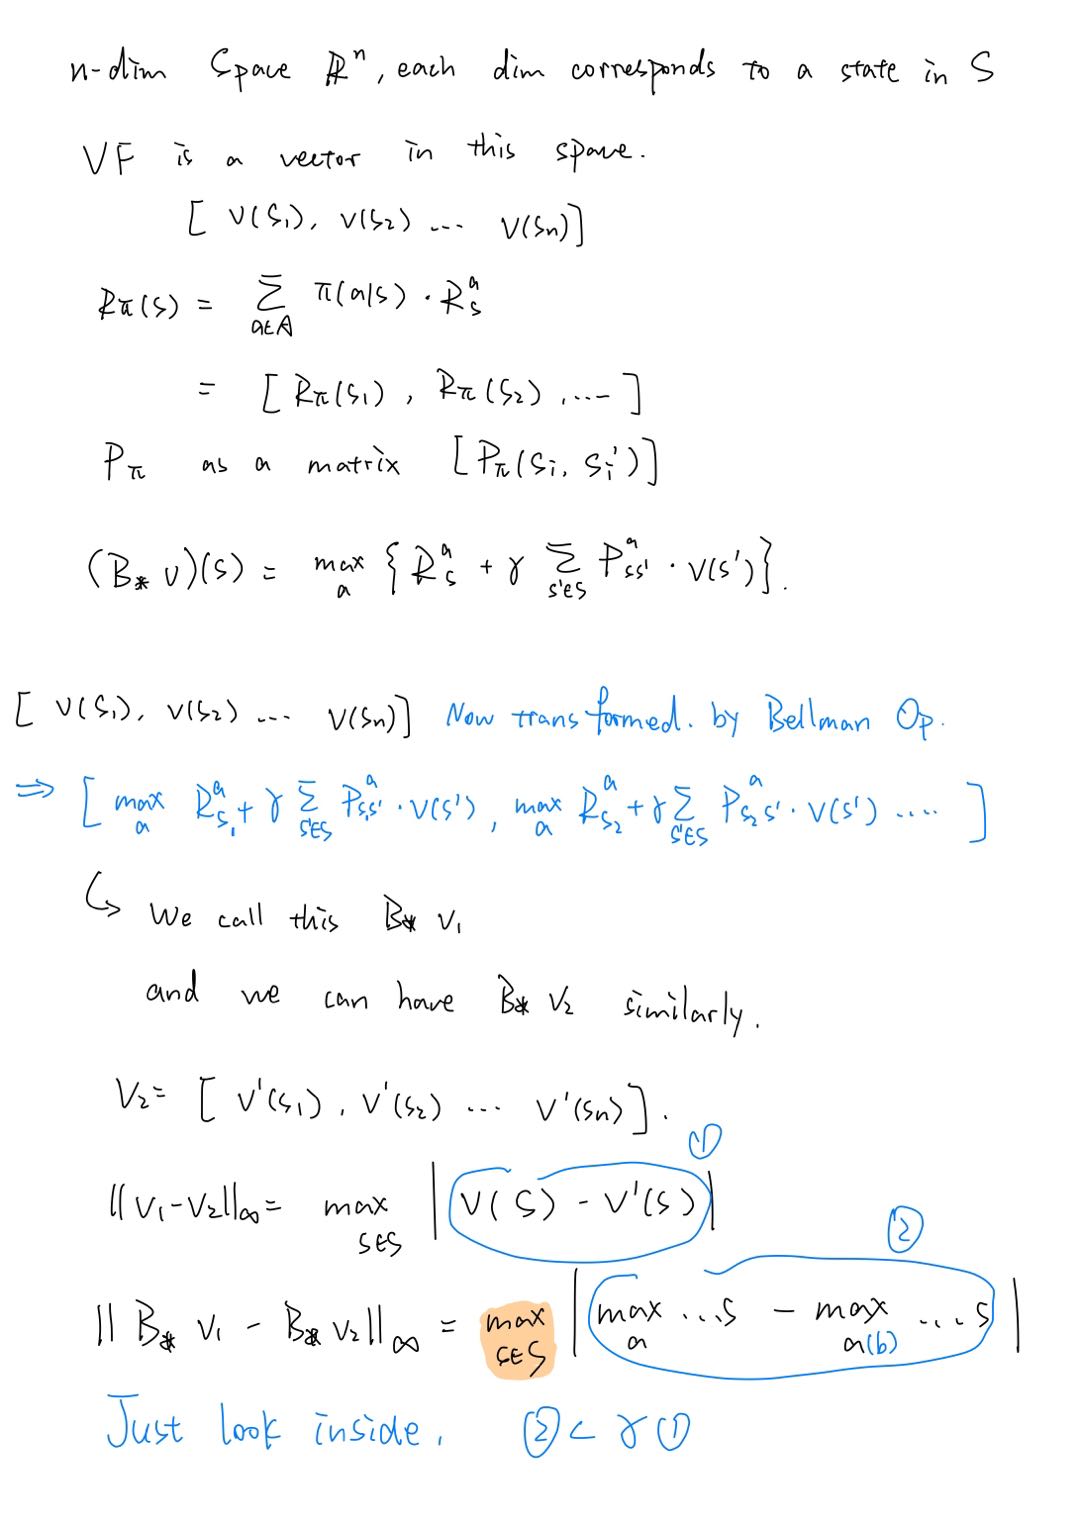 n-dim Space ℝⁿ, each dim corresponds to a state in S
VF is a vector in this space.
[ V(S₁), V(S₂) ... V(Sn)]
Rπ(s) = Σ_{a∈A} π(a|s) · R_s^a
= [ Rπ(S₁), Rπ(S₂), .... ]
Pπ as a matrix [Pπ(Si, Si')]
(B* V)(s) = max_a { R_s^a + γ Σ_{s'∈S} P_{ss'}^a · V(s') }.
[ V(S₁), V(S₂) ... V(Sn)] Now transformed. by Bellman Op.
⇒ [ max_a R_{s₁}^a + γ Σ_{s'∈S} P_{s₁s'}^a · V(s'), max_a R_{s₂}^a + γ Σ_{s'∈S} P_{s₂s'}^a · V(s') .... ]
↳ We call this B* V₁
and we can have B* V₂ similarly.
V₂= [ V'(S₁), V'(S₂) ... V'(Sn)].
①
||V₁-V₂||∞ = max_{s∈S} | V(S) - V'(S) |
②
|| B* V₁ - B* V₂ ||∞ = max_{s∈S} | max_a ...S - max_{a(b)} ...S |
Just look inside. ② < γ ①